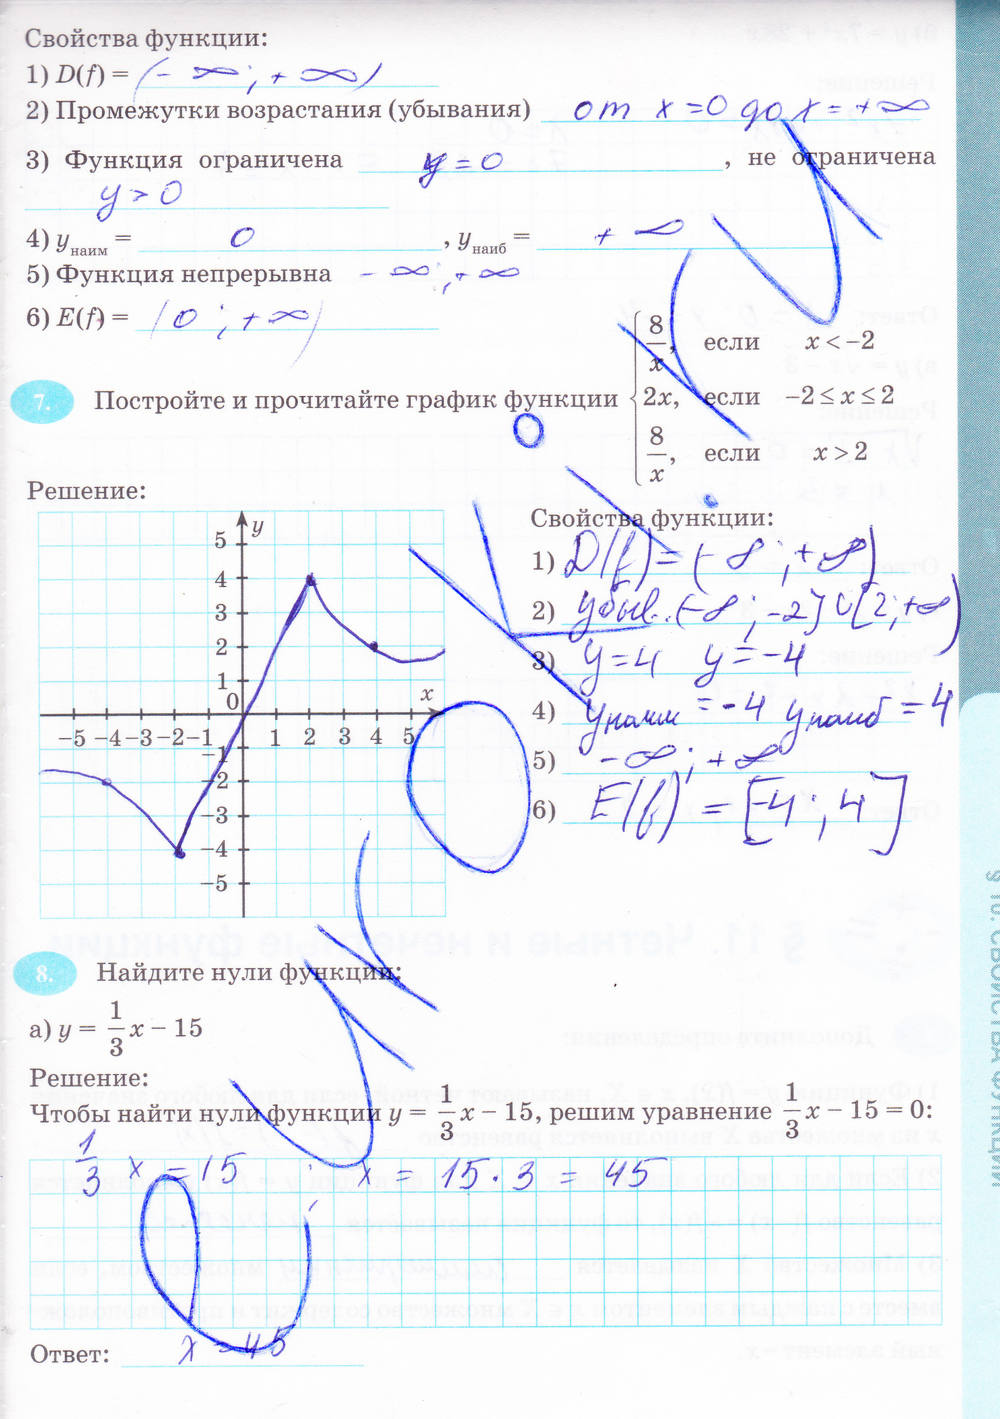 Свойства функции:
1) D(f) = (-∞; +∞)
2) Промежутки возрастания (убывания) от x=0 до x=+∞
3) Функция ограничена y=0, не ограничена
y>0
4) yнаим = 0, yнаиб = +∞
5) Функция непрерывна -∞; +∞
6) E(f) = (0; +∞)
8/x, если x < -2
7. Постройте и прочитайте график функции 2x, если -2 ≤ x ≤ 2
8/x, если x > 2
Решение:
Свойства функции:
1) D(f) = (-∞; +∞)
2) убыв. (-∞; -2] ∪ [2; +∞)
3) y=4 y=-4
4) yнаим = -4 yнаиб = 4
5) -∞; +∞
6) E(f) = [-4; 4]
y
5
4
3
2
1
0
x
-5 -4 -3 -2 -1 1 2 3 4 5
-1
-2
-3
-4
-5
8. Найдите нули функции:
а) y = 1/3 x - 15
Решение:
Чтобы найти нули функции y = 1/3 x - 15, решим уравнение 1/3 x - 15 = 0:
1/3 x = 15; x = 15 · 3 = 45
Ответ: x = 45
§ 10. СВОЙСТВА ФУНКЦИИ